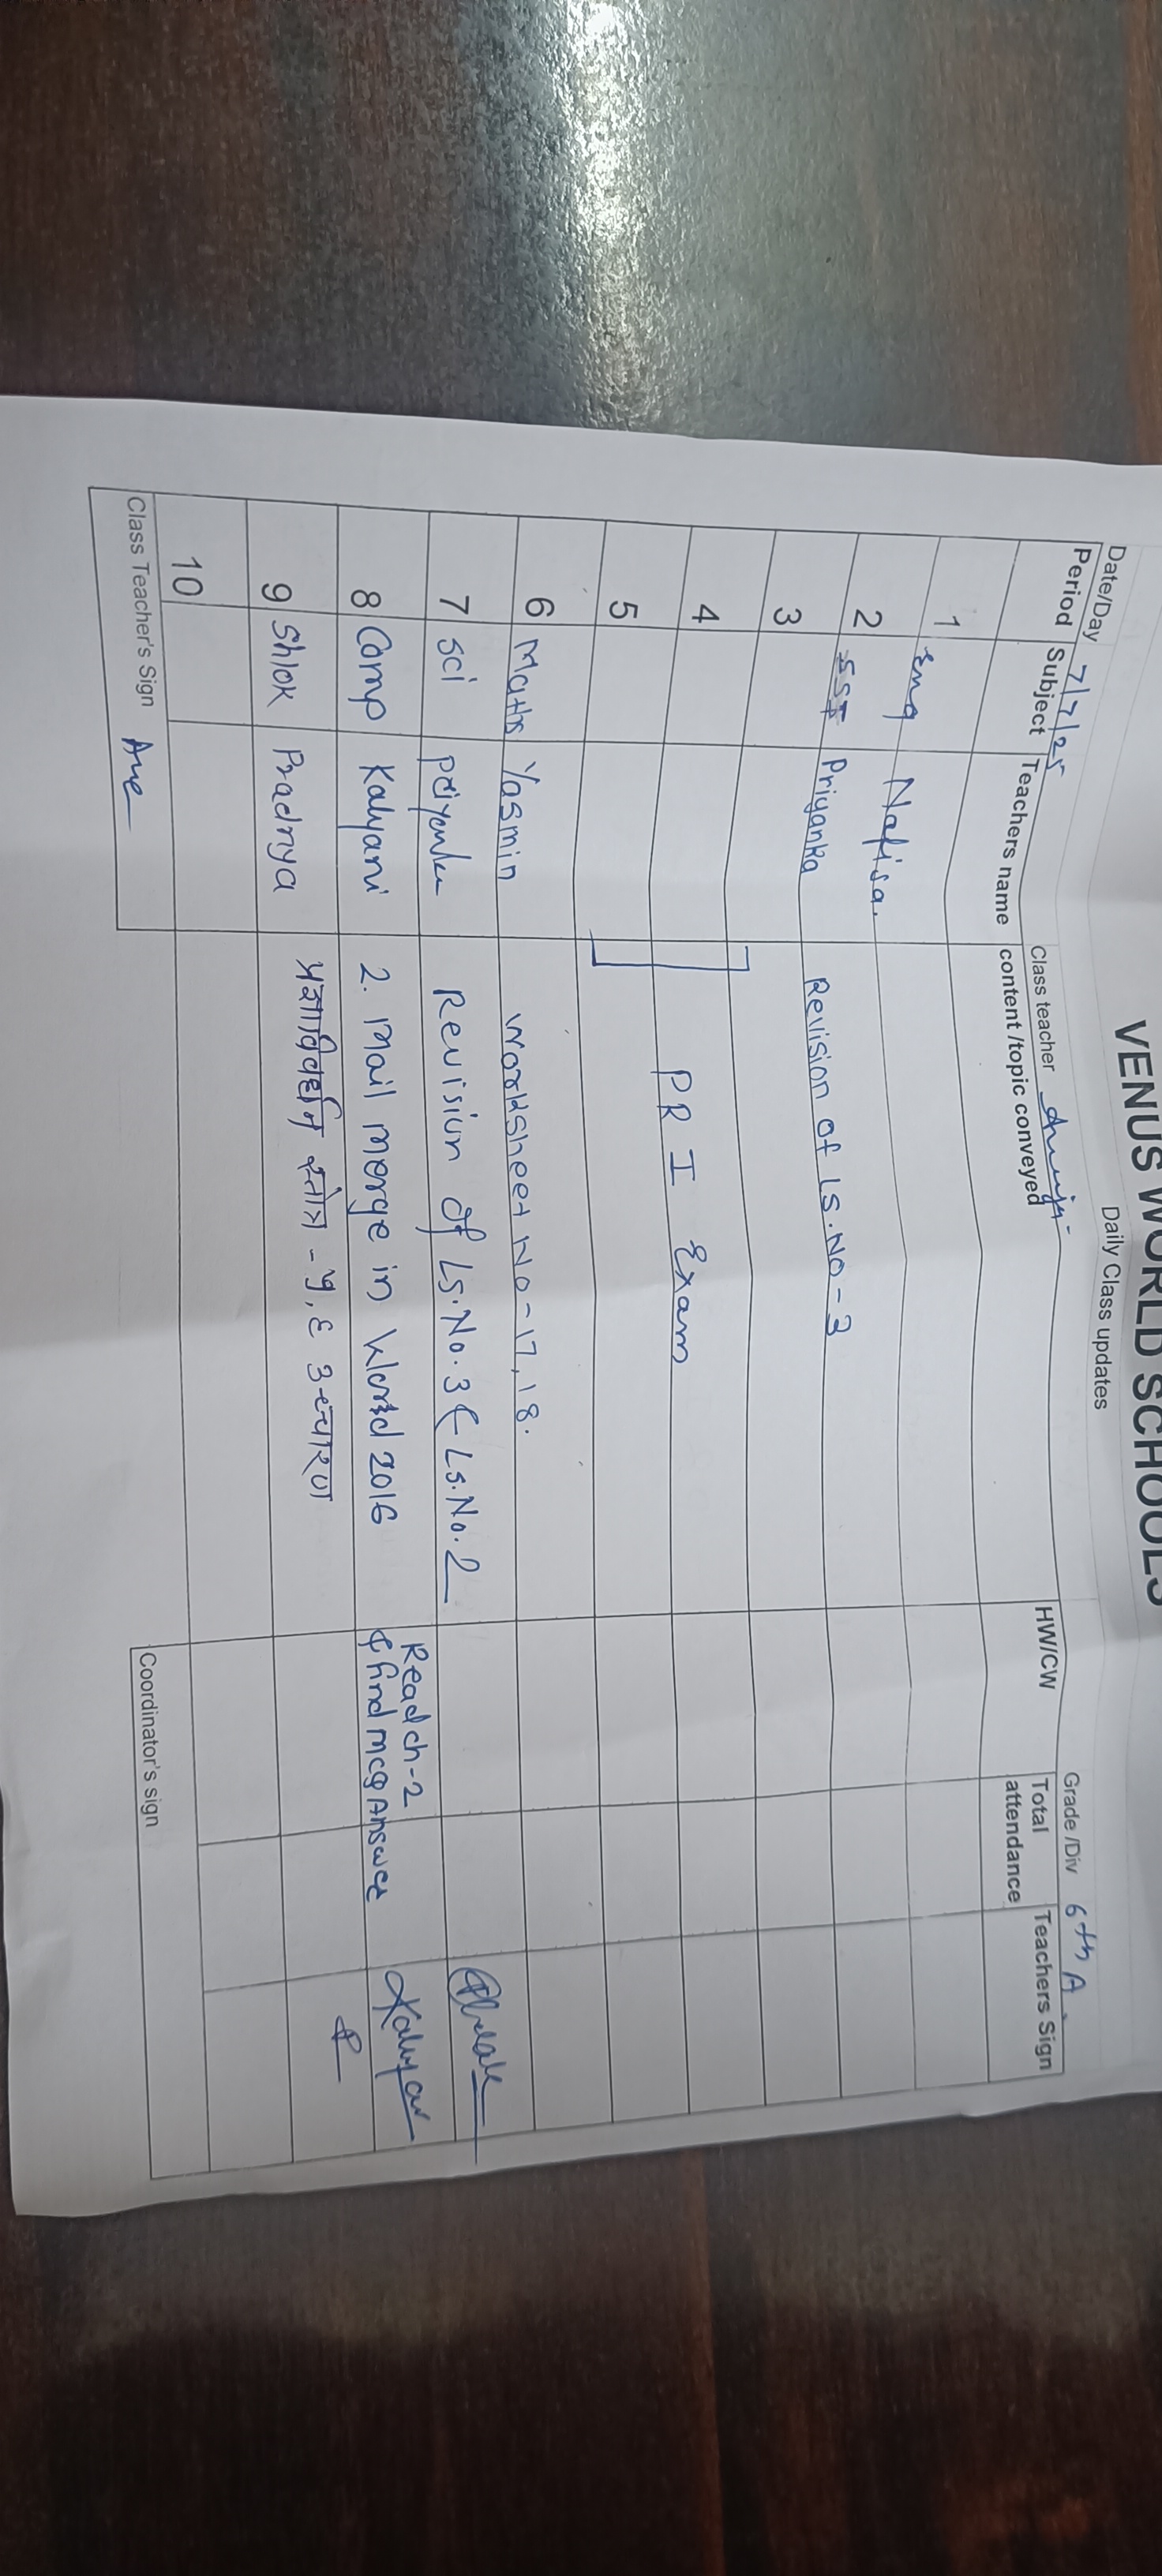 VENUS WORLD SCHOOLS
Daily Class updates
Date/Day 7/7/25 Class teacher Grade /Div 6th A
Period Subject Teachers name content /topic conveyed HW/CW Total attendance Teachers Sign
1 Eng Nafisa.
2 SST Priyanka Revision of LS.NO-3
3
4 PR I Exam
5
6 Maths Yasmin Worksheet No-17, 18.
7 sci Priyanka Revision of LS.No.3 & LS.No.2
8 Comp Kalyani 2. mail merge in Word 2016 Read ch-2
& find mcq Answer
9 Shlok Pradnya प्रज्ञाविवर्धन स्तोत्र - ५, ६ उच्चारण
10
Class Teacher's Sign Coordinator's sign